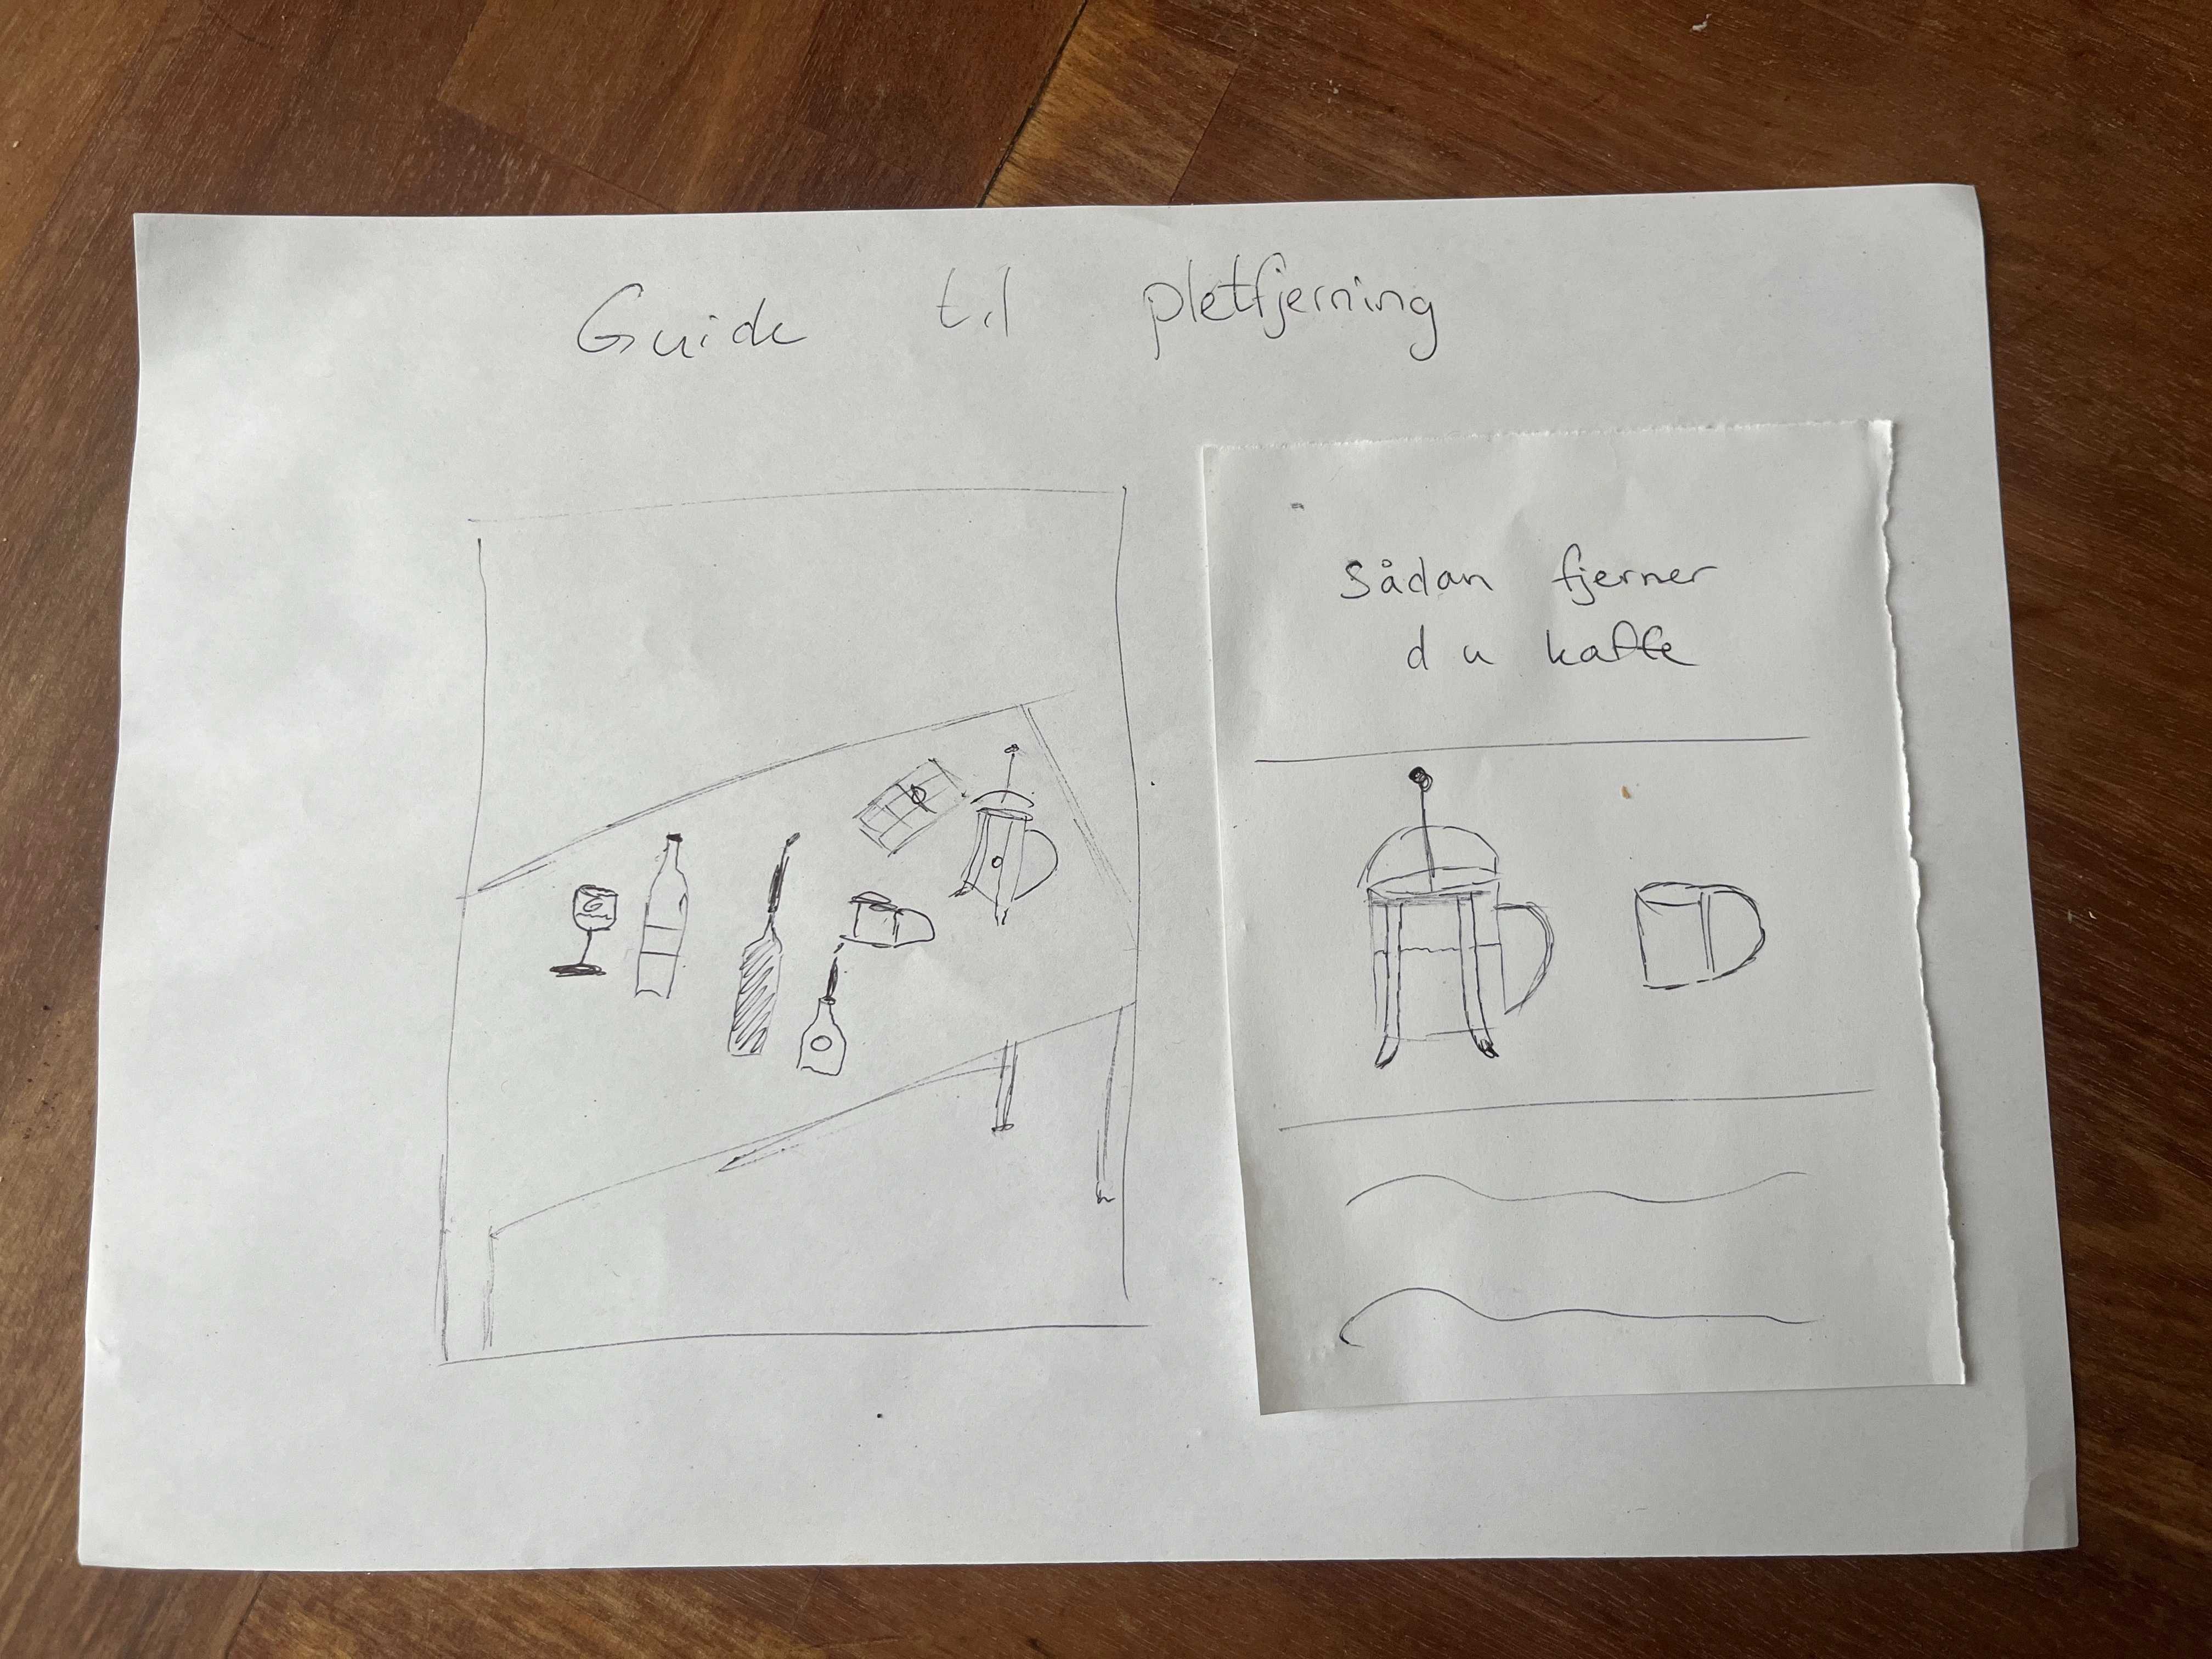 Guide til pletfjerning
Sådan fjerner
du kaffe